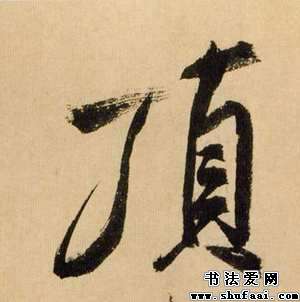 頂
书法爱网
www.shufaai.com